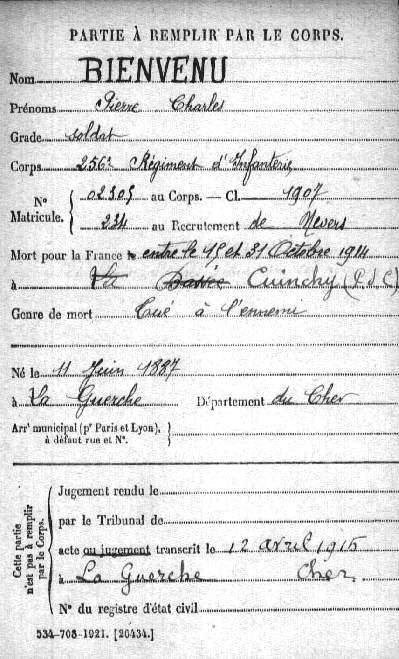 PARTIE À REMPLIR PAR LE CORPS.
Nom BIENVENU
Prénoms Pierre Charles
Grade soldat
Corps 256e Régiment d'Infanterie
N° Matricule. { 02305 au Corps. — Cl. 1907
234 au Recrutement de Nevers
Mort pour la France le entre le 15 et 31 Octobre 1914
à La Bassée Cuinchy (P.d.C)
Genre de mort Tué à l'ennemi
Né le 11 Juin 1887
à La Guerche Département du Cher
Arrt municipal (pr Paris et Lyon), }
à défaut rue et N°.
Cette partie n'est pas à remplir par le Corps.
Jugement rendu le
par le Tribunal de
acte ou jugement transcrit le 12 avril 1915
à La Guerche Cher
N° du registre d'état civil
534-708-1921. [26434.]